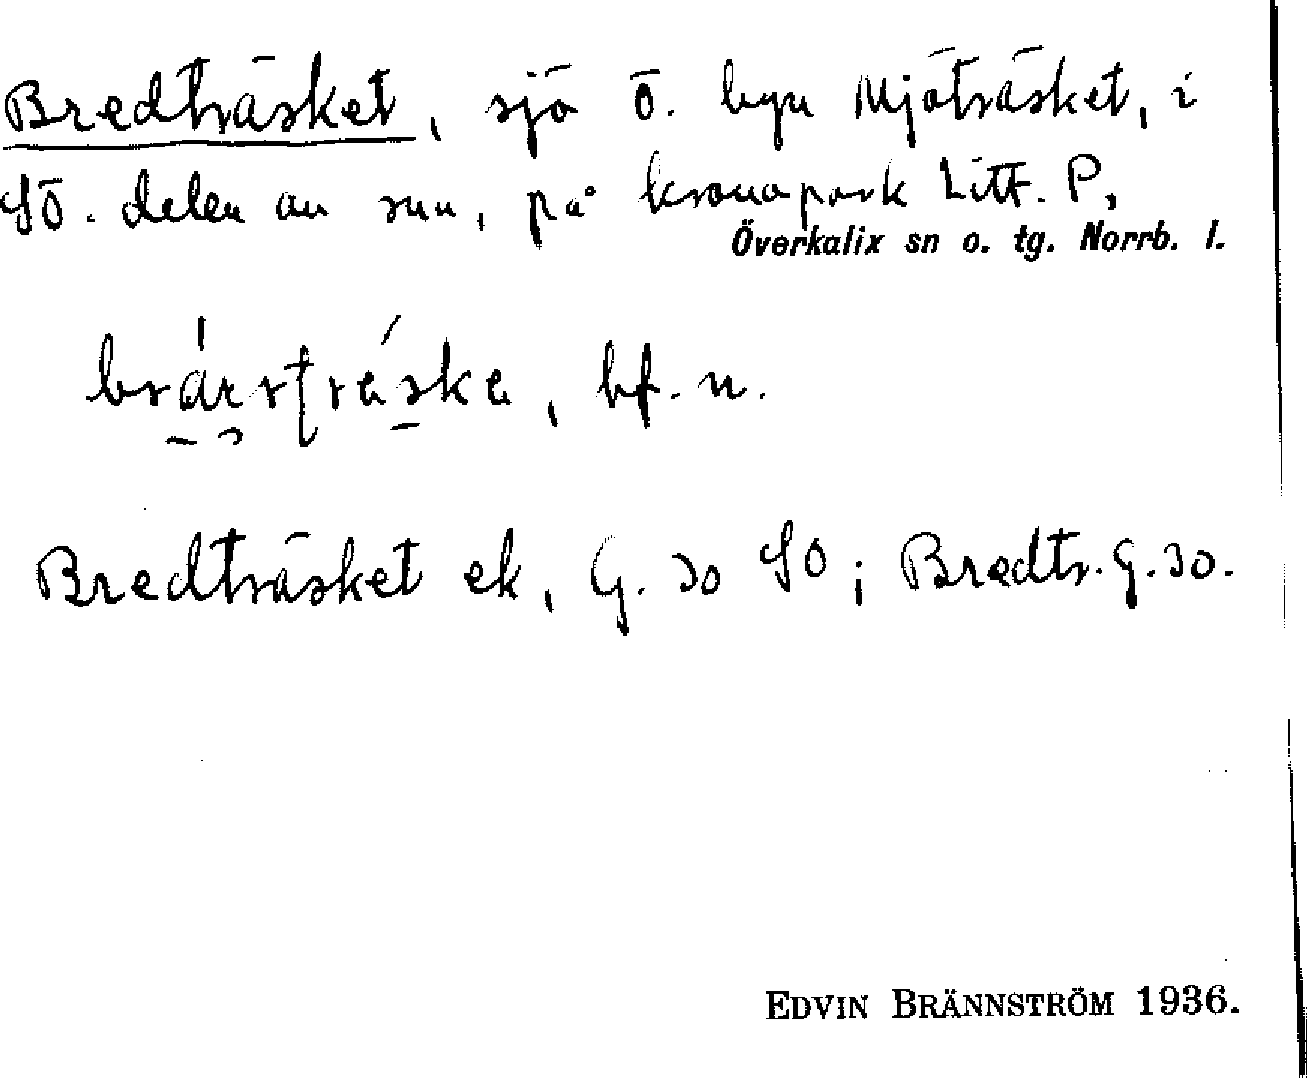 Bredträsket, sjö ö. byn Mjöträsket, i
SÖ. delen av snn, på kronopark Litt. P,
Överkalix sn o. tg. Norrb. l.
bf. n.
Bredträsket ek, G. 30 SO; Bredtr. G. 30.
EDVIN BRÄNNSTRÖM 1936.